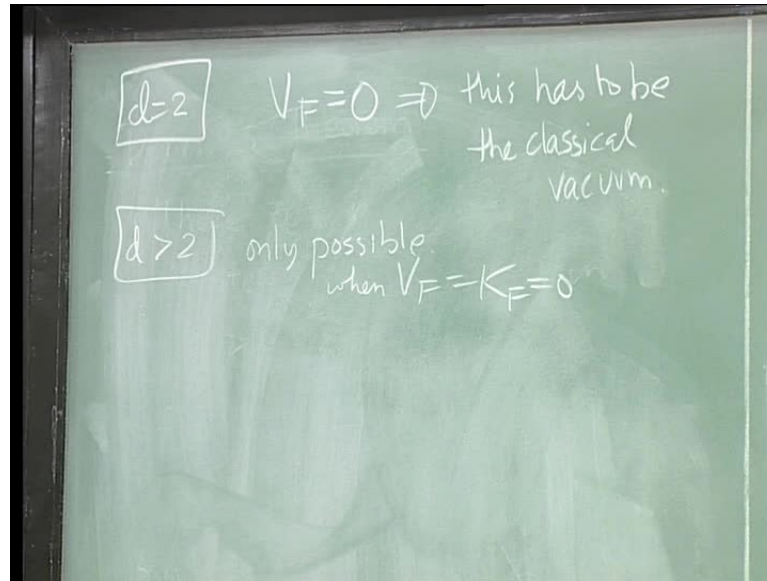 d=2 V_F=0 ⇒ this has to be
the classical
vacuum.
d>2 only possible
when V_F=K_F=0